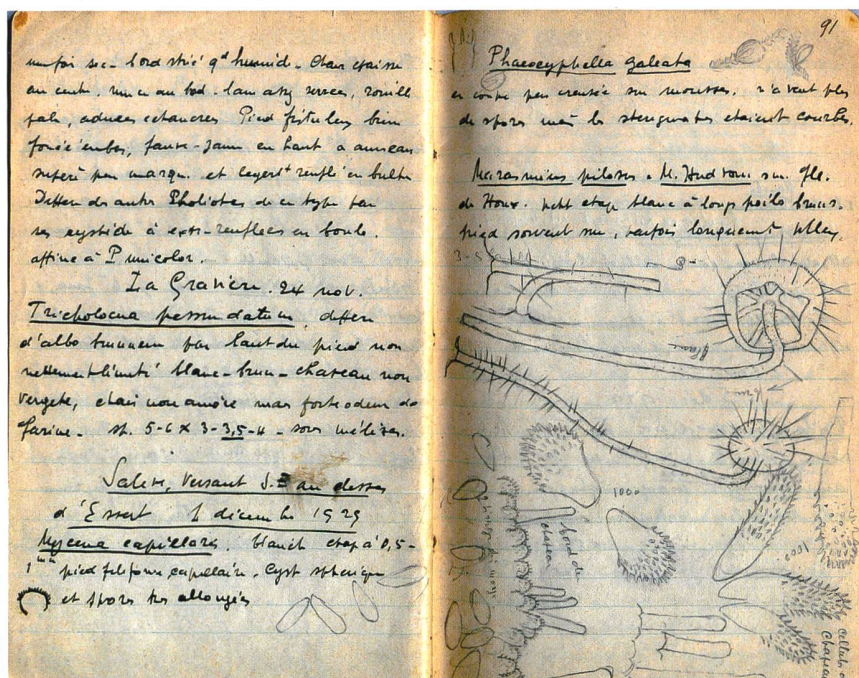 une fois sec - bord strié qd humide - Chair épaisse
au centre, mince au bord - lam assy serrées, rouille
pale, adnées echancrées Pied fistuleux brun
foncé en bas, fauve-jaun en haut à anneau
supère peu marqu. et légert renflé en bulbe
Differ des autres Pholiotes de ce type par
ses cystide à extr-renflées en boule.
affine à P unicolor.
La Gravière. 24 nov.
Tricholoma pessundatum, differ
d'albo brunneum par haut du pied non
nettement limité blanc-brun - chapeau non
vergeté, chair non amère mas forte odeur de
farine. sp. 5-6 x 3-3,5-4 - sous mélèzes.
Salève, Versant S.E au dessus
d'Essert 1 décembre 1929
Mycena capillaris, blanch chap à 0,5-
1mm pied filiforme capillaire. Cyst sphérique
et spores très allongées
91
Phaeocyphella galeata
en coupe peu creusée sur mousses. n'avait plus
de spores mais les sterigmates étaient courbes.
Marasmius pilosus = M. Hudsoni sur fle.
de Houx. petit chap blanc à longs poils bruns.
pied souvent nu, parfois longuement
3-5
1000
bord de
1000
cellules
chapeau